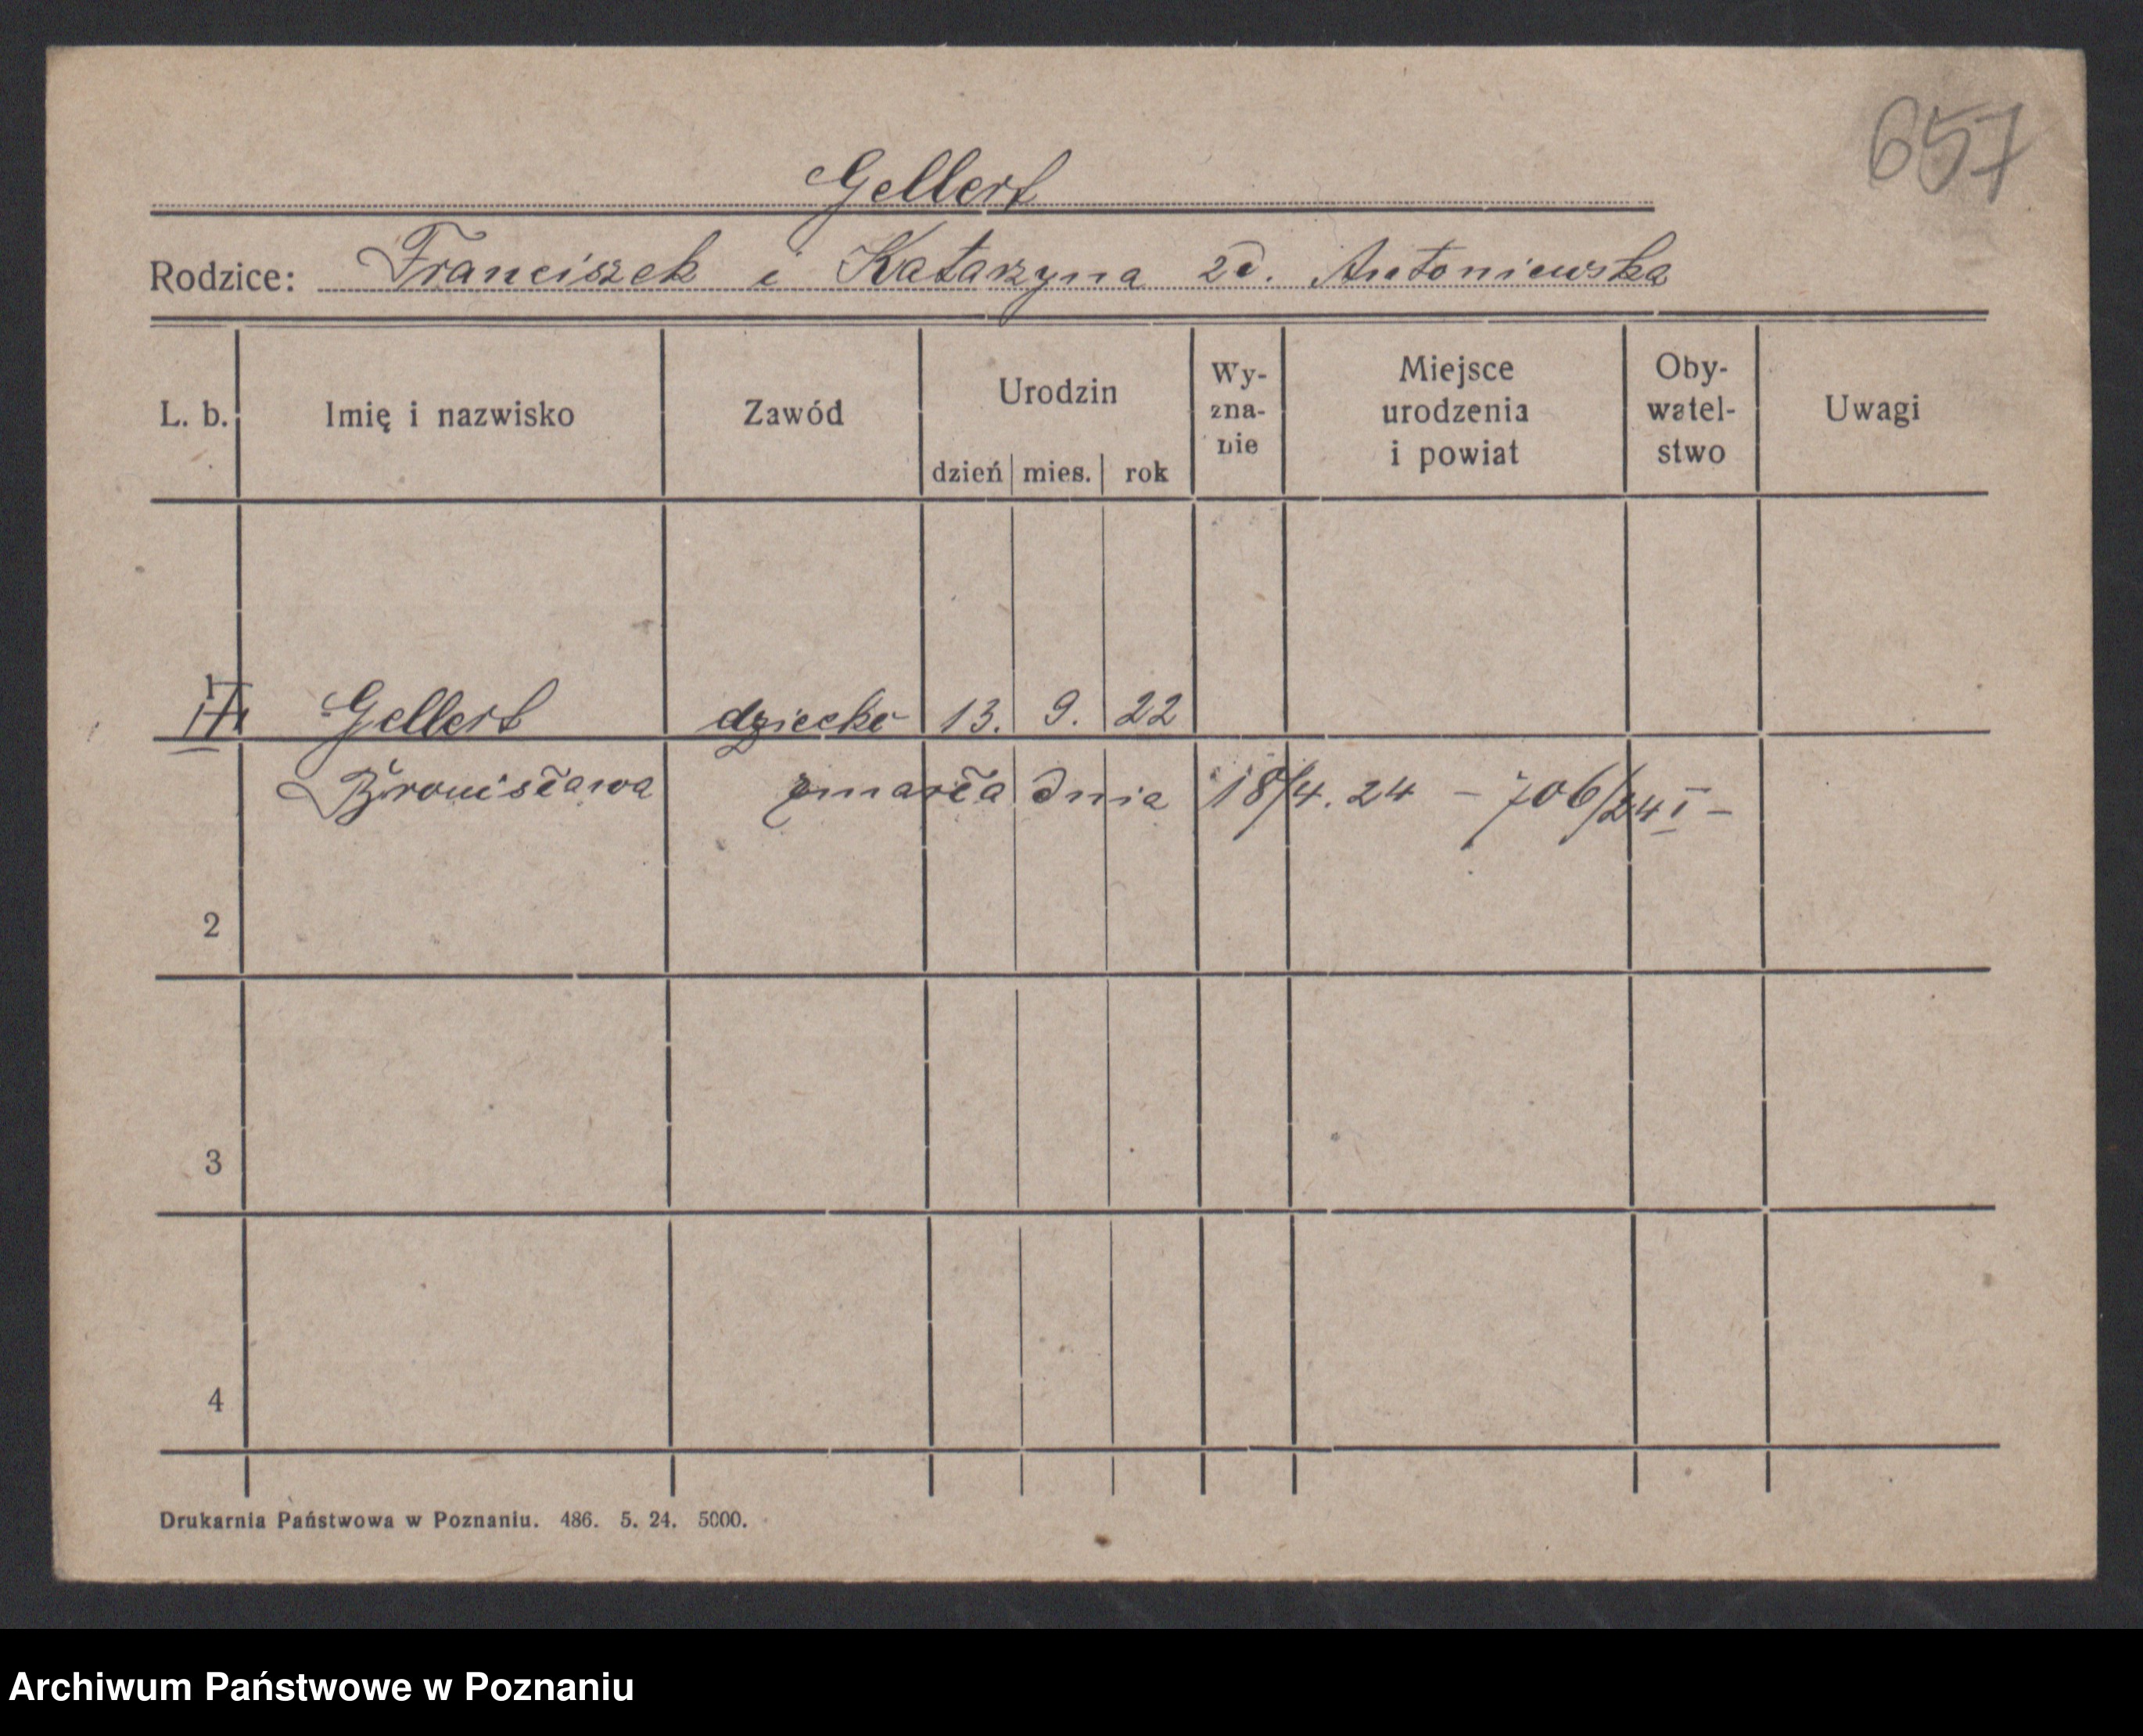 657
Gellert
Rodzice: Franciszek i Katarzyna zd. Antoniewska
L. b. Imię i nazwisko Zawód Urodzin dzień mies. rok Wy-zna-nie Miejsce urodzenia i powiat Oby-watel-stwo Uwagi
1 Gellert dziecko 13. 9. 22
Bronisława zmarła dnia 18/4. 24 – 706/24 I –
2
3
4
Drukarnia Państwowa w Poznaniu. 486. 5. 24. 5000.
Archiwum Państwowe w Poznaniu